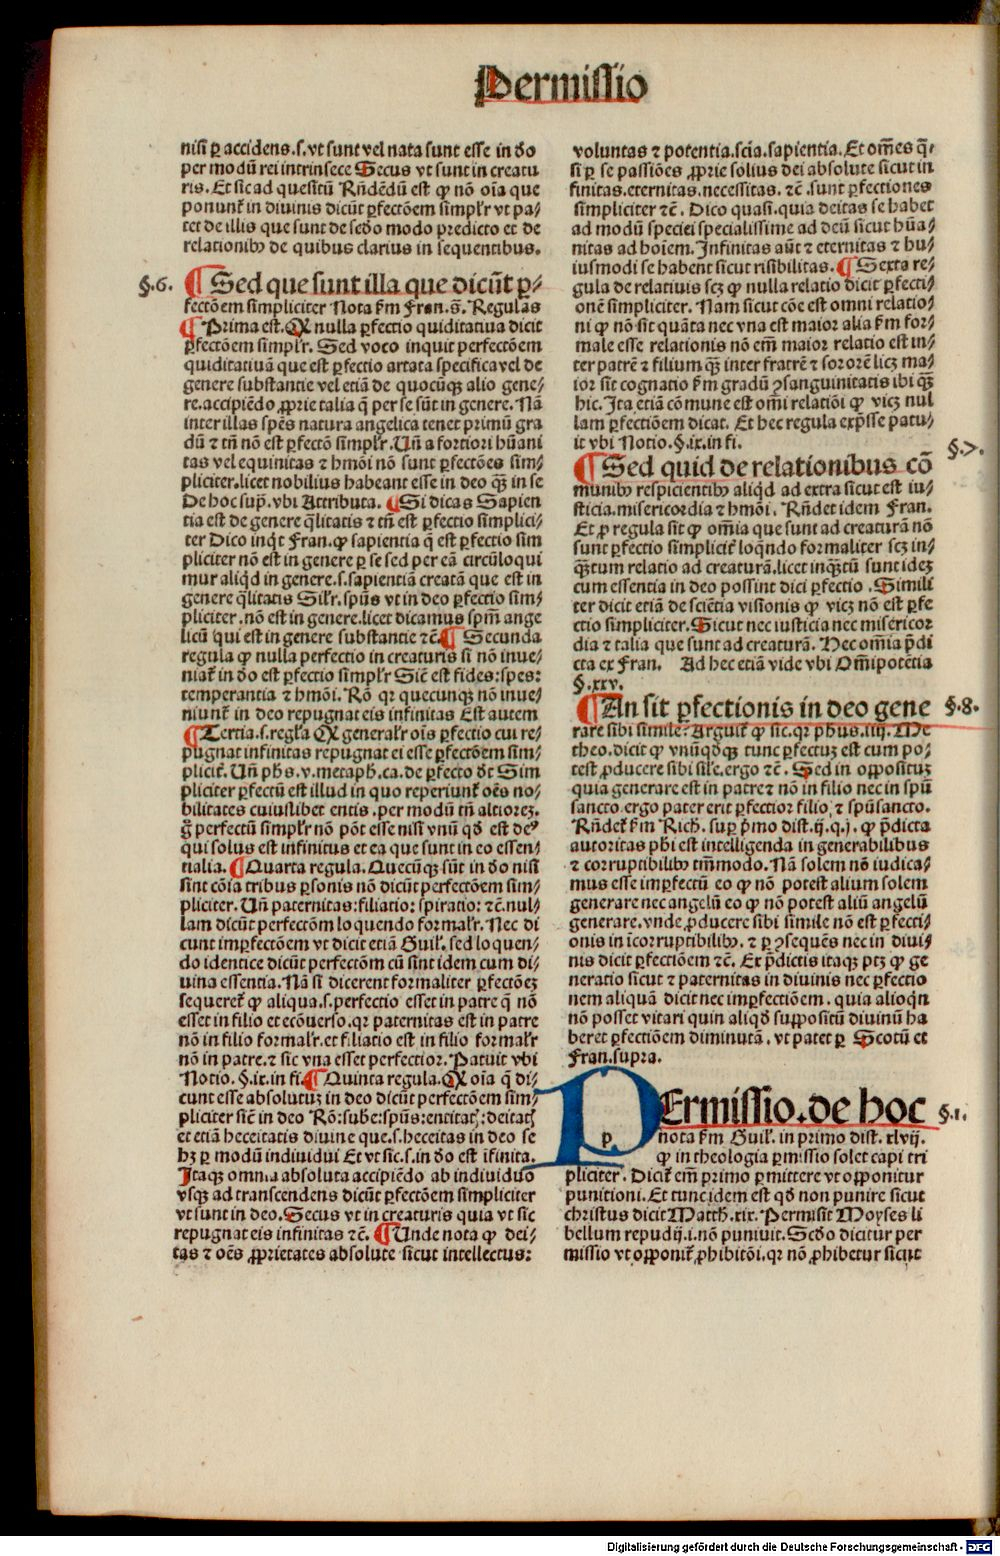 Permissio
nisi ꝑ accidens.s.vt sunt vel nata sunt esse in ꝺo
per modū rei intrinsece Secus vt sunt in creatu
ris. Et sic ad quesitū Rñdēdū est ꝙ nō oīa que
ponunt̄ in diuinis dicūt ꝑfectōem simpl'r vt pa⸗
tet de illis que sunt de seꝺo modo predicto et de
relationibꝰ de quibus clarius in sequentibus.
§.6. ¶ Sed que sunt illa que dicūt ꝑ⸗
fectōem simpliciter Nota ẜm Fran. s̄. Regulas
¶ Prima est. Qꝙ nulla ꝑfectio quiditatiua dicit
ꝑfectōem simpl'r. Sed voco inquit perfectōem
quiditatiuā que est ꝑfectio artata specifica vel de
genere substantie vel etiā de quocūqꝫ alio gene⸗
re.accipiēdo ꝓprie talia q̄ per se sūt in genere. Nā
inter illas spēs natura angelica tenet primū gra
dū ⁊ tn̄ nō est ꝑfectō simpl'r. Un̄ a fortiori hūani
tas vel equinitas ⁊ hmōi nō sunt ꝑfectōes sim⸗
pliciter.licet nobilius habeant esse in deo qꝫ in se
De hoc suꝑ. vbi Attributa. ¶ Si dicas Sapien
tia est de genere q̄litatis ⁊ tn̄ est ꝑfectio simplici⸗
ter Dico inq̄t Fran.ꝙ sapientia q̄ est ꝑfectio sim
pliciter nō est in genere ꝑ se sed per eā circūloqui
mur aliqd in genere.s.sapientiā creatā que est in
genere q̄litatis Sil'r. spūs vt in deo ꝑfectio sim⸗
pliciter.nō est in genere.licet dicamus spm̄ ange
licū qui est in genere substantie ⁊c̄. ¶ Secunda
regula ꝙ nulla perfectio in creaturis si nō inue⸗
niat̄ in ꝺo est ꝑfectio simpl'r Sic̄ est fides:spes:
temperantia ⁊ hmōi. Rō qꝛ quecunqꝫ nō inue⸗
niunt̄ in deo repugnat eis infinitas Est autem
¶ Tertia.s.regl'a Qꝙ general'r oīs ꝑfectio cui re⸗
pugnat infinitas repugnat ei esse ꝑfectōem sim⸗
plicit̄. Un̄ phs.v.metaph.ca.de ꝑfecto ꝺt Sim
pliciter ꝑfectū est illud in quo reperiunt̄ oēs no⸗
bilitates cuiuslibet entis .per modū tn̄ altiorez.
g̊ perfectū simpl'r nō pōt esse nisi vnū qꝺ est deꝰ
qui solus est infinitus et ea que sunt in eo essen⸗
tialia. ¶ Quarta regula. Quecūqꝫ sūt in ꝺo nisi
sint cōia tribus ꝑsonis nō dicūt perfectōem sim⸗
pliciter. Un̄ paternitas:filiatio: spiratio: ⁊c̄.nul⸗
lam dicūt perfectōm loquendo formal'r. Nec di
cunt imꝑfectōem vt dicit etiā Guil'. sed loquen⸗
do identice dicūt perfectōm cū sint idem cum di⸗
uina essentia. Nā si dicerent formaliter ꝑfectōeꝫ
sequeret̄ ꝙ aliqua.s.perfectio esset in patre q̄ nō
esset in filio et ecōuerso.qꝛ paternitas est in patre
nō in filio formal'r.et filiatio est in filio formal'r
nō in patre.⁊ sic vna esset perfectior. Patuit vbi
Notio. §.ix.in fi. ¶ Quinta regula. Qꝙ oīa q̄ di⸗
cunt esse absolutuꝫ in deo dicūt perfectōem sim⸗
pliciter sic̄ in deo Rō:sube:spūs:entitaꝭ:deitaꝭ
et etiā heceitatis diuine que.s.heceitas in deo se
hꝫ ꝑ modū indiuidui Et vt sic.s.in ꝺo est ifinita.
Itaqꝫ omnia absoluta accipiēdo ab indiuiduo
vsqꝫ ad transcendens dicūt ꝑfectōem simpliciter
vt sunt in deo. Secus vt in creaturis quia vt sic
repugnat eis infinitas ⁊c̄. ¶ Unde nota ꝙ dei⸗
tas ⁊ oēs ꝓprietates absolute sicut intellectus:
voluntas ⁊ potentia.scīa.sapientia. Et om̄es q̄⸗
si ꝑ se passiōes ꝓprie solius dei absolute sicut in
finitas.eternitas.necessitas. ⁊c̄ .sunt ꝑfectiones
simpliciter ⁊c̄. Dico quasi.quia deitas se habet
ad modū speciei specialissime ad deū sicut hūa⸗
nitas ad hoīem. Infinitas aūt ⁊ eternitas ⁊ hu⸗
iusmodi se habent sicut risibilitas. ¶ Sexta re⸗
gula de relatiuis scꝫ ꝙ nulla relatio dicit ꝑfecti⸗
onē simpliciter. Nam sicut cōe est omni relatio⸗
ni ꝙ nō sit quāta nec vna est maior alia ẜm for⸗
male esse relationis nō em̄ maior relatio est in⸗
ter patrē ⁊ filium qꝫ inter fratrē ⁊ sororē licꝫ ma⸗
ior sit cognatio ẜm gradū ꝯsanguinitatis ibi qꝫ
hic. Ita etiā cōmune est om̄i relatiōi ꝙ vicꝫ nul
lam ꝑfectiōem dicat. Et hec regula exp̄sse patu⸗
it vbi Notio.§.ix.in fi.
¶ Sed quid de relationibus cō §.7.
munibꝰ respicientibꝰ aliqd ad extra sicut est iu⸗
sticia.misericordia ⁊ hmōi. Rñdet idem Fran.
Et ꝑ regula sit ꝙ om̄ia que sunt ad creaturā nō
sunt ꝑfectio simplicit̄ loq̄ndo formaliter scꝫ in⸗
qꝫtum relatio ad creaturā.licet inqꝫtū sunt ideꝫ
cum essentia in deo possint dici ꝑfectio . Simili
ter dicit etiā de scīentia visionis ꝙ vicꝫ nō est ꝑfe
ctio simpliciter. Sicut nec iusticia nec misericor
dia ⁊ talia que sunt ad creaturā. Hec om̄ia p̄di
cta ex Fran. Ad hec etiā vide vbi Om̄ipotētia
§.xxv.
¶ An sit ꝑfectionis in deo gene §.8.
rare sibi simile? Arguit̄ ꝙ sic.qꝛ phus.iiij. Me
theo.dicit ꝙ vnūqꝺqꝫ tunc ꝑfectuꝫ est cum po⸗
test ꝓducere sibi sil'e.ergo ⁊c̄. Sed in oppositum
quia generare est in patre ⁊ nō in filio nec in spū
sancto.ergo pater erit ꝑfectior filio, ⁊ spūsancto.
Rñdet̄ ẜm Rich. suꝑ p̄mo dist.ij.q.j. ꝙ p̄dicta
autoritas phi est intelligenda in generabilibus
⁊ corruptibilibꝰ tm̄modo. Nā solem nō iudica⸗
mus esse imꝑfectū eo ꝙ nō potest alium solem
generare nec angelū eo ꝙ nō potest aliū angelū
generare.vnde ꝓducere sibi simile nō est ꝑfecti⸗
onis in īcorruptibilibꝰ. ⁊ ꝑ ꝯsequēs nec in diui⸗
nis dicit ꝑfectiōem ⁊c̄. Ex p̄dictis itaqꝫ ptꝫ ꝙ ge
neratio sicut ⁊ paternitas in diuinis nec ꝑfectio
nem aliquā dicit nec imꝑfectiōem. quia alioq̄n
nō posset vitari quin aliqꝺ suppositū diuinū ha
beret ꝑfectiōem diminutā. vt patet ꝑ Scotū et
Fran.supra.
PErmissio.de hoc §.1.
p nota ẜm Guil'. in primo dist. xlvij.
ꝙ in theologia ꝑmissio solet capi tri
pliciter . Dicit̄ em̄ primo ꝑmittere vt opponitur
punitioni. Et tunc idem est qꝺ non punire sicut
christus dicit Matth. xix. Permisit Moyses li
bellum repudij.i.nō puniuit. Scꝺo dicitur per
missio vt opponit̄ ꝓhibitōi.qꝛ nō ꝓhibetur sicut
Digitalisierung gefördert durch die Deutsche Forschungsgemeinschaft - DFG